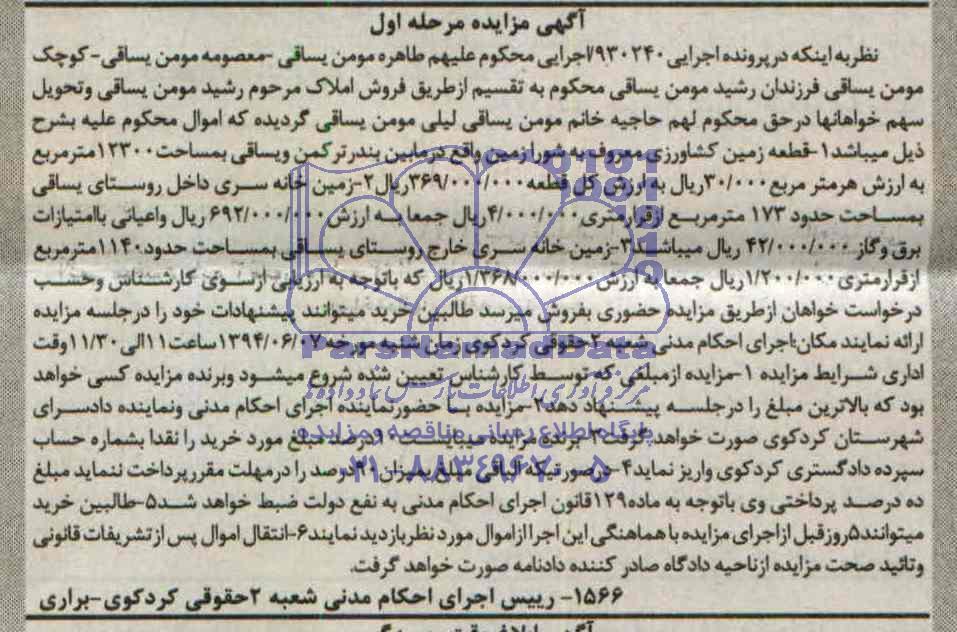 آگهی مزایده مرحله اول
نظر به اینکه در پرونده اجرایی ۹۳۰۲۴۰/اجرایی محکوم علیهم طاهره مومن یساقی -معصومه مومن یساقی- کوچک
مومن یساقی فرزندان رشید مومن یساقی محکوم به تقسیم ازطریق فروش املاک مرحوم رشید مومن یساقی وتحویل
سهم خواهانها درحق محکوم لهم حاجیه خانم مومن یساقی لیلی مومن یساقی گردیده که اموال محکوم علیه بشرح
ذیل میباشد۱-قطعه زمین کشاورزی معروف به شورا زمین واقع درمابین بندر ترکمن ویساقی بمساحت۱۲۳۰۰مترمربع
به ارزش هرمتر مربع ۳۰/۰۰۰ریال به ارزش کل قطعه۳۶۹/۰۰۰/۰۰۰ریال۲-زمین خانه سری داخل روستای یساقی
بمساحت حدود ۱۷۳ مترمربع ازقرارمتری۴/۰۰۰/۰۰۰ریال جمعا به ارزش ۶۹۲/۰۰۰/۰۰۰ ریال واعیانی باامتیازات
برق وگاز ۴۲/۰۰۰/۰۰۰ ریال میباشد۳-زمین خانه سری خارج روستای یساقی بمساحت حدود۱۱۴۰مترمربع
ازقرارمتری۱/۲۰۰/۰۰۰ریال جمعا به ارزش ۱/۳۶۸/۰۰۰/۰۰۰ریال که باتوجه به ارزیابی ازسوی کارشناس وحسب
درخواست خواهان ازطریق مزایده حضوری بفروش میرسد طالبین خرید میتوانند پیشنهادات خود را درجلسه مزایده
ارائه نمایند مکان:اجرای احکام مدنی شعبه ۲حقوقی کردکوی زمان شنبه مورخه ۱۳۹۴/۰۶/۰۷ساعت۱۱الی۱۱/۳۰وقت
اداری شرایط مزایده ۱-مزایده ازمبلغی که توسط کارشناس تعیین شده شروع میشود وبرنده مزایده کسی خواهد
بود که بالاترین مبلغ را درجلسه پیشنهاد دهد۲-مزایده با حضورنماینده اجرای احکام مدنی ونماینده دادسرای
شهرستان کردکوی صورت خواهد گرفت۳-برنده مزایده میبایست۱۰درصد مبلغ مورد خرید را نقدا بشماره حساب
سپرده دادگستری کردکوی واریز نماید۴-درصورتیکه الباقی مبلغ بمیزان۹۰درصد را درمهلت مقررپرداخت ننماید مبلغ
ده درصد پرداختی وی باتوجه به ماده۱۲۹قانون اجرای احکام مدنی به نفع دولت ضبط خواهد شد۵-طالبین خرید
میتوانند۵روزقبل ازاجرای مزایده با هماهنگی این اجرا ازاموال مورد نظربازدید نمایند۶-انتقال اموال پس ازتشریفات قانونی
وتائید صحت مزایده ازناحیه دادگاه صادر کننده دادنامه صورت خواهد گرفت.
۱۵۶۶- رییس اجرای احکام مدنی شعبه ۲حقوقی کردکوی-براری
ParsNamadData
مرکز فرآوری اطلاعات پارس نماد داده ها
پایگاه اطلاع رسانی مناقصه و مزایده
۰۲۱-۸۸۳۴۹۶۷۰-۵